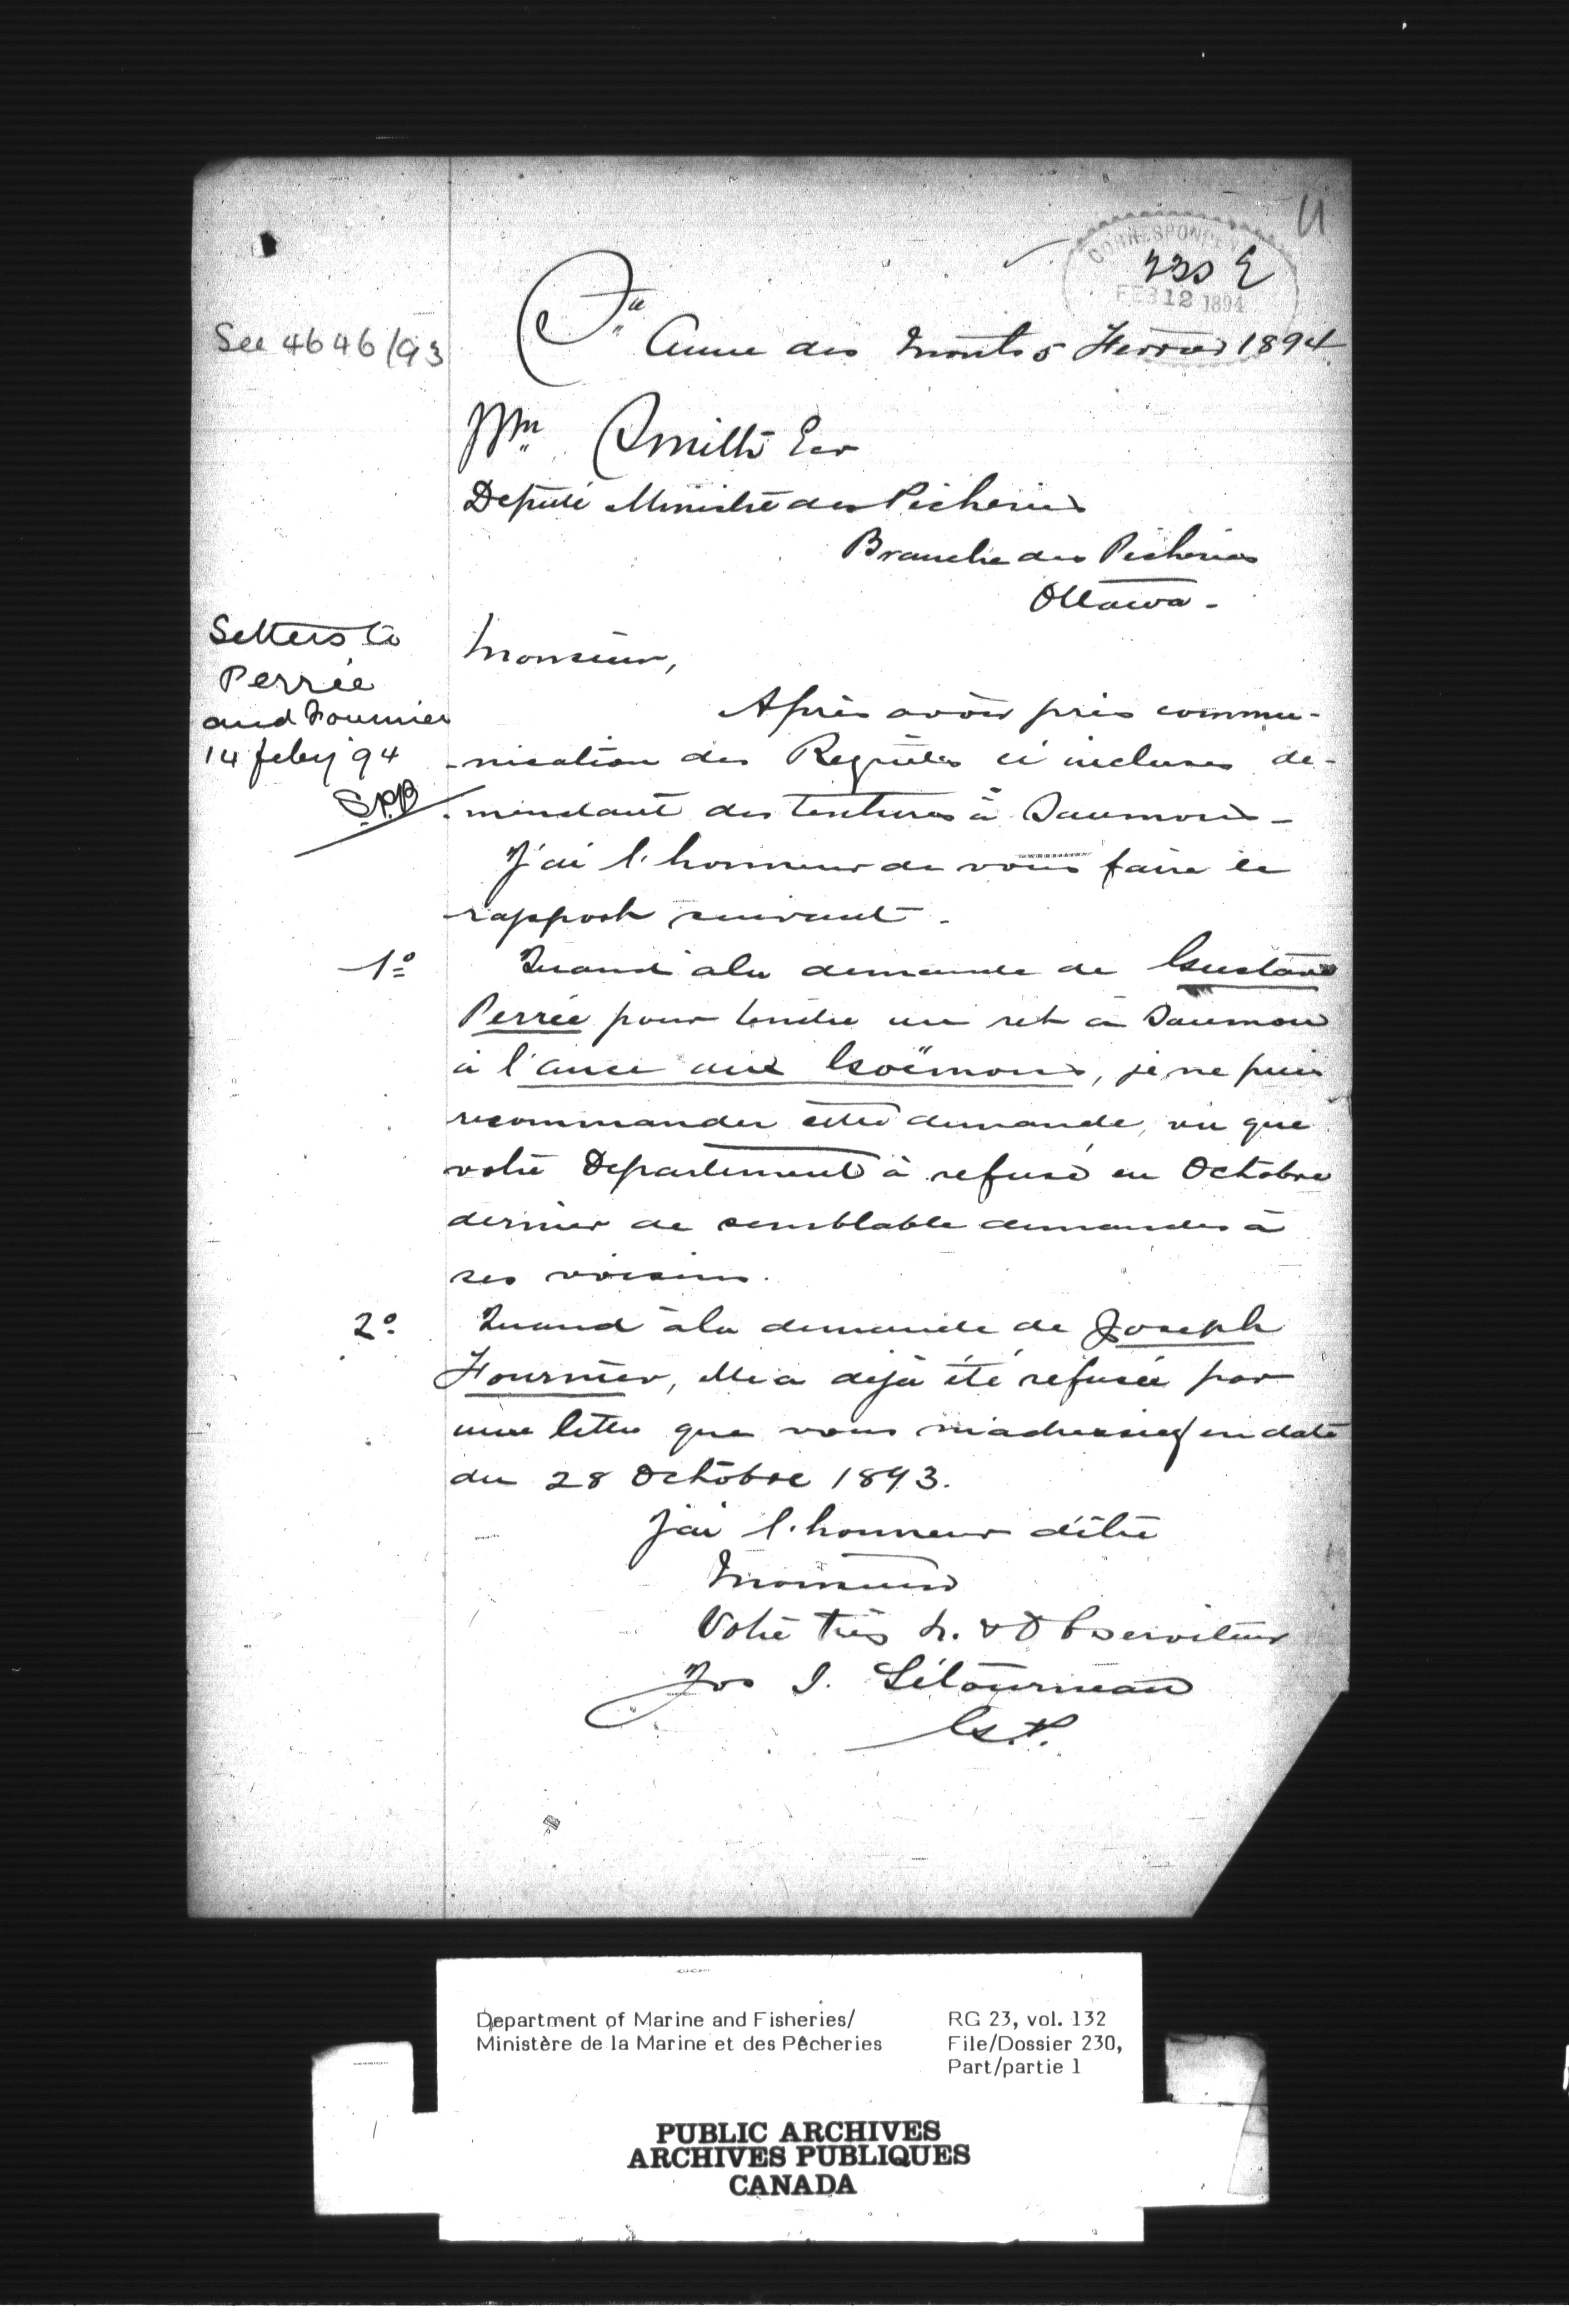 11
CORRESPONDEN
230 E
FEB 12 1894
Ste Anne des Monts 5 Fevrier 1894
See 4646/93
Wm Smith Esr
Deputé Ministre des Pêcheries
Branche des Pêcheries
Ottawa -
Letters to
Perrée
and Fournier
14 feby 94
S.P.B
Monsieur,
Après avoir pris commu-
-nication des Requêtes ci incluses de-
-mandant des tentures à Saumons -
J'ai l'honneur de vous faire le
rapport suivant -
1o Quand à la demande de Gustave
Perrée pour tendre un ret à Saumon
à l'ance aux Goëmons, je ne puis
recommander cette demande, vu que
votre Departement à refusé en Octobre
dernier de semblable demandes à
ses voisins.
2o Quand à la demande de Joseph
Fournier, elle a déjà été refusée par
une lettre que vous m'adressiez en date
du 28 Octobre 1893.
J'ai l'honneur d'être
Monsieur
Votre très h. & Ob serviteur
Jos I. Létourneau
G.P.
Department of Marine and Fisheries/
Ministère de la Marine et des Pêcheries
RG 23, vol. 132
File/Dossier 230,
Part/partie 1
PUBLIC ARCHIVES
ARCHIVES PUBLIQUES
CANADA